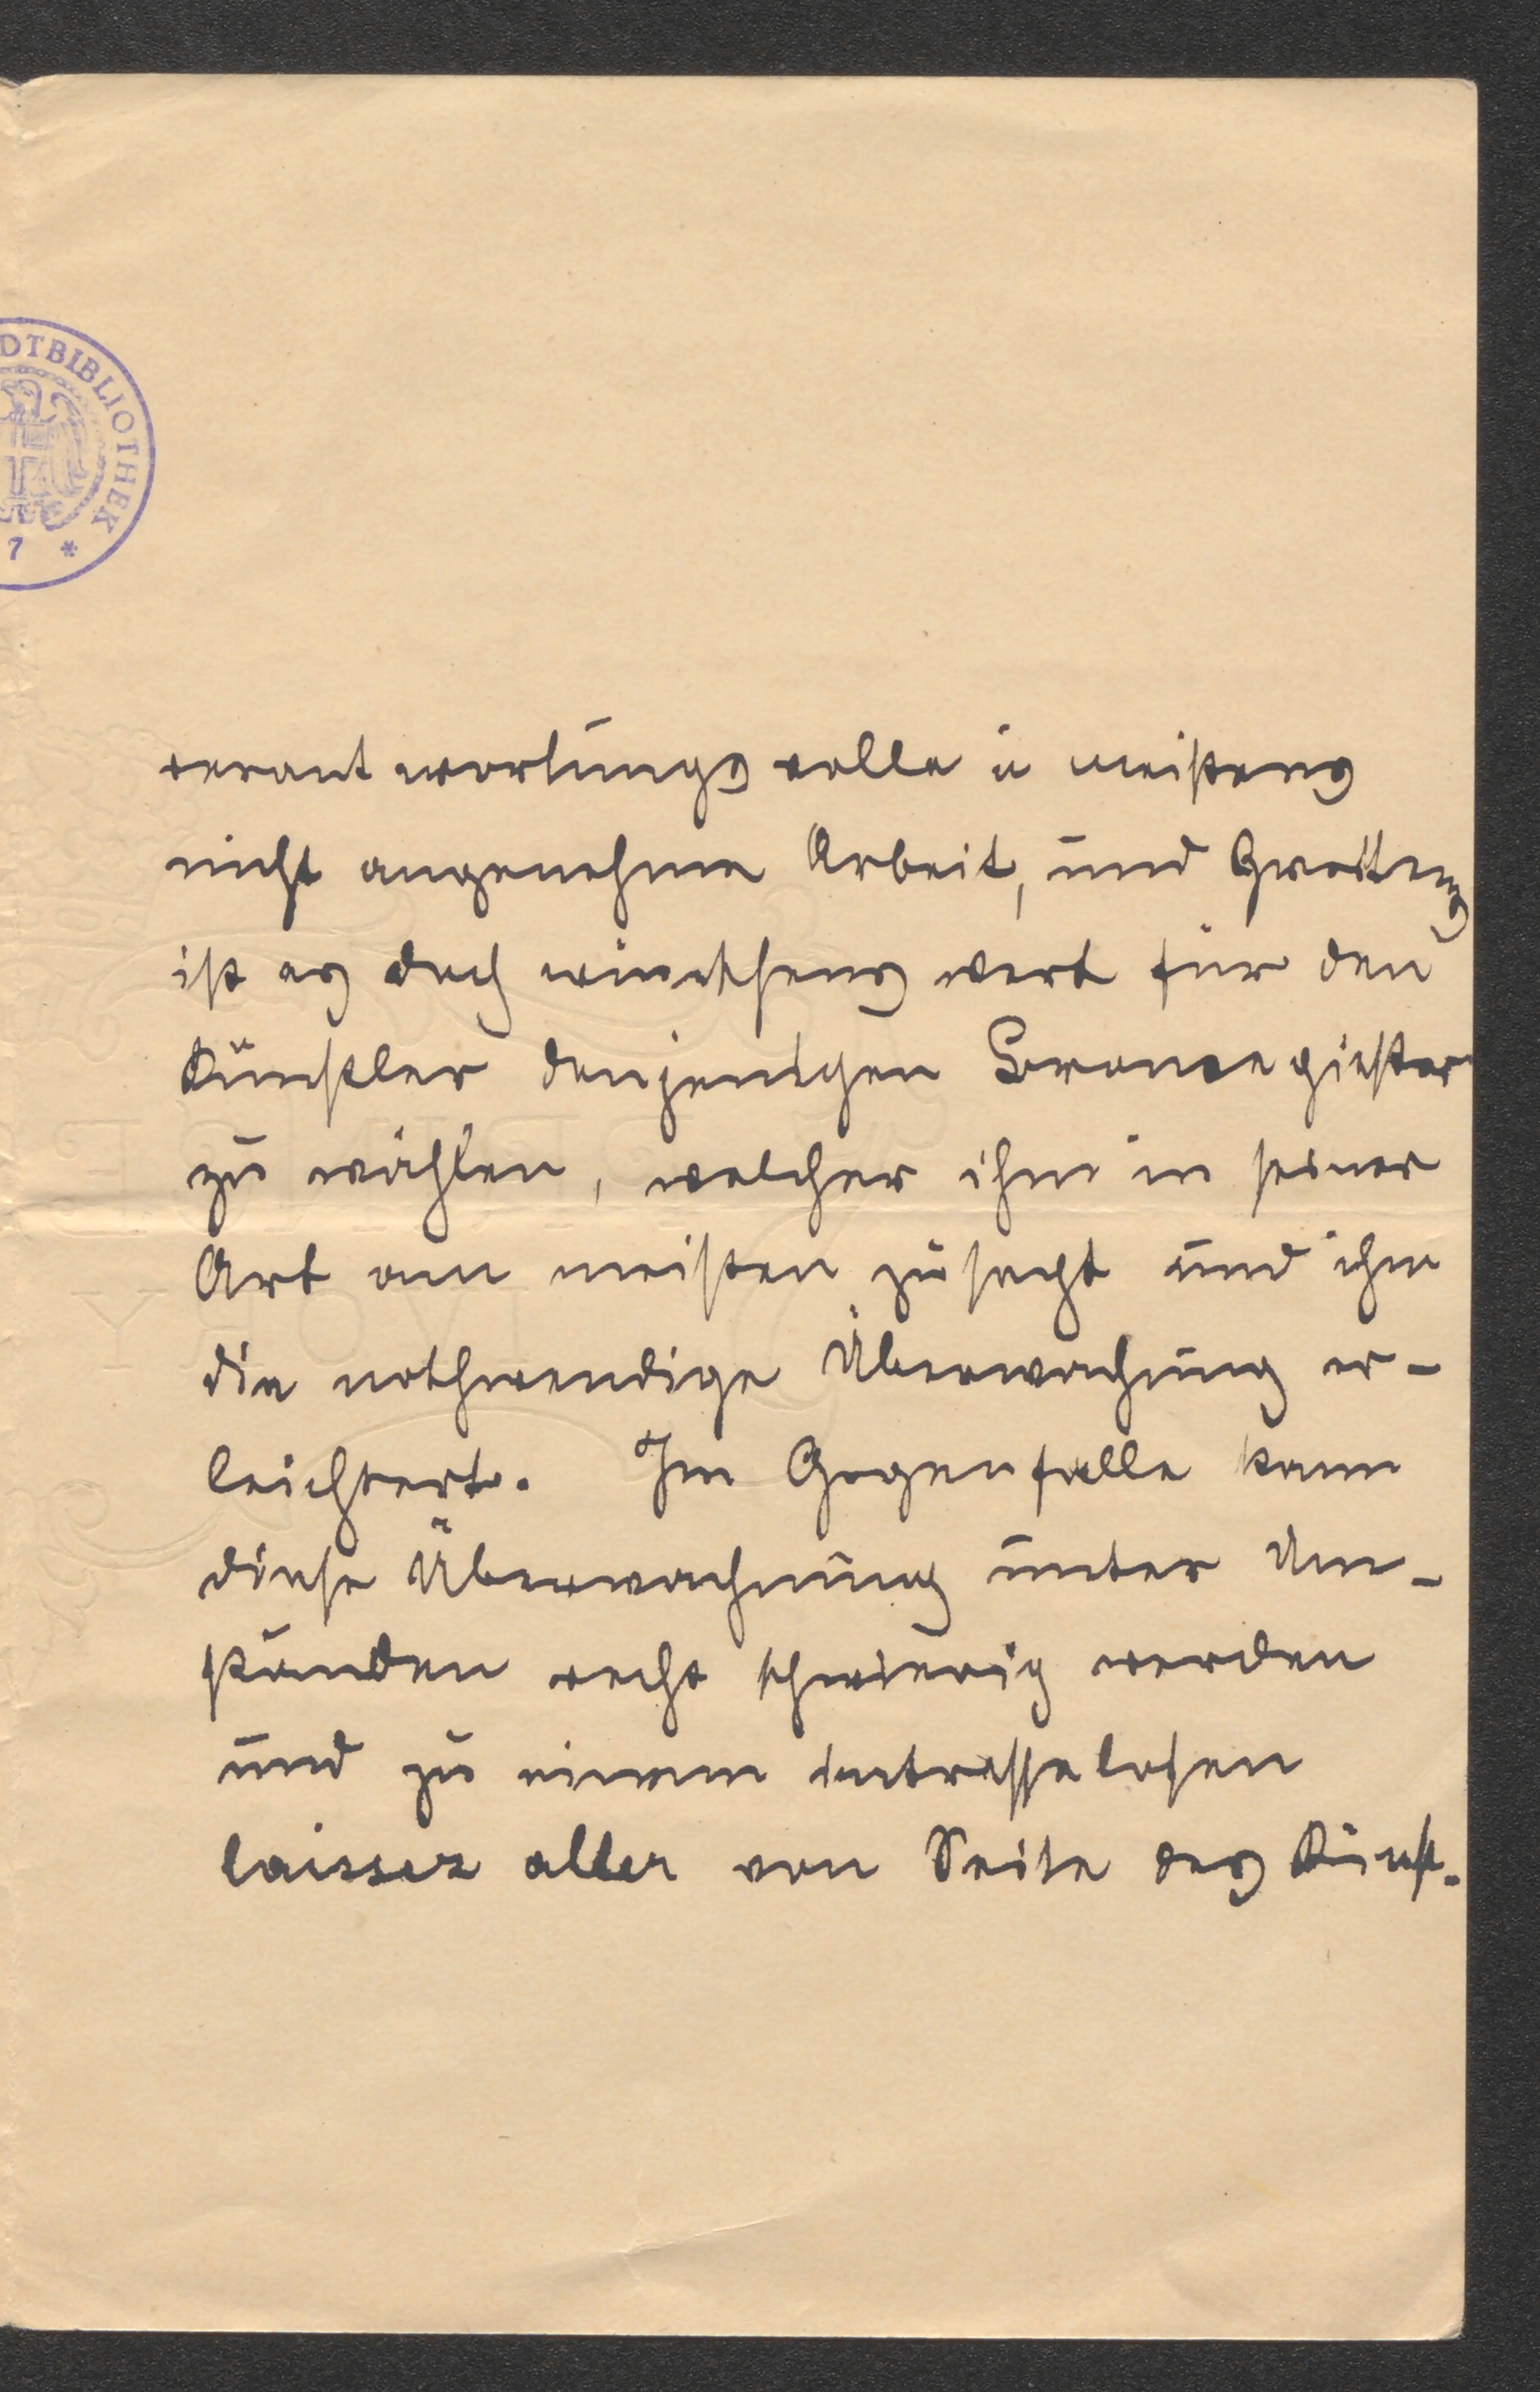 DTBIBLIOTHEK
7 *
verantwortungsvolle u meistens
nicht angenehme Arbeit, und Zweitens
ist es doch wünschens wert für den
Künstler denjenigen Broncegießer
zu wählen, welcher ihm in seiner
Art am meisten zusagt und ihm
die nothwendige Überwachung er-
leichtert. Im Gegenfalle kann
diese Überwachung unter Um-
ständen recht schwierig werden
und zu einem intresselosen
laisser aller von Seite des Künst-